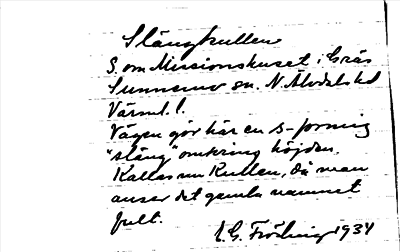 Slängkullen
S. om Missionshuset i Gräs
Sunnemo sn. N. Älvdals hd
Värml. l.
Vägen gör här en s-formig
"släng" omkring höjden.
Kallas nu Kullen, då man
anser det gamla namnet
fult.
E.G. Fröding 1934